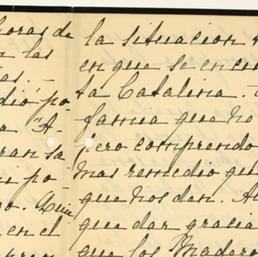 horas de
las
as. -
dió po
a "A
ran sa
po
o. Que
en el
la situacion
en que se encu
ta Catalina.
famia que no
pero comprendo
mas remedio qu
que nos dan. A
que dar gracia
que los Madero